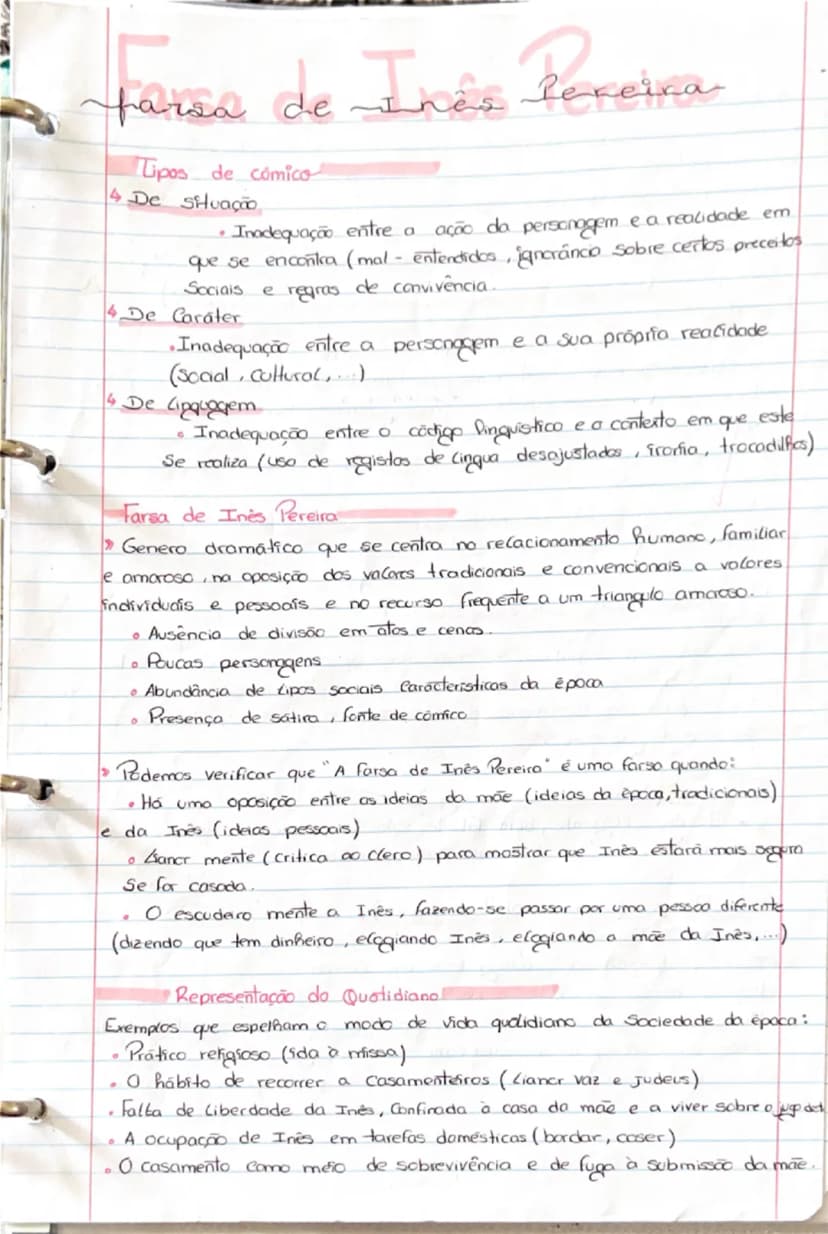 Farsa de Inês Pereira
Farsa de Inês Pereira
Tipos de cómico
↳ De situação
• Inadequação entre a ação da personagem e a realidade em
que se encontra (mal-entendidos, ignorância sobre certos preceitos
Sociais e regras de convivência.
↳ De Caráter
• Inadequação entre a personagem e a sua própria realidade
(Social, Cultural, ...)
↳ De Linguagem
• Inadequação entre o código linguístico e o contexto em que este
Se realiza (uso de registos de Língua desajustados, ironia, trocadilhos)
Farsa de Inês Pereira
» Genero dramático que se centra no relacionamento humano, familiar
e amoroso, na oposição dos valores tradicionais e convencionais a valores
individuais e pessoais e no recurso frequente a um triangulo amoroso.
• Ausência de divisão em atos e cenas.
• Poucas personagens
• Abundância de tipos sociais Característicos da época
• Presença de sátira, fonte de cómico
» Podemos verificar que "A Farsa de Inês Pereira" é uma farsa quando:
• Há uma oposição entre as ideias da mãe (ideias da época, tradicionais)
e da Inês (ideias pessoais)
• Lianor mente (critica ao clero) para mostrar que Inês estará mais segura
Se for casada.
• O escudeiro mente a Inês, fazendo-se passar por uma pessoa diferente
(dizendo que tem dinheiro, elogiando Inês, elogiando a mãe da Inês, ...)
Representação do Quotidiano
Exemplos que espelham o modo de vida quotidiano da Sociedade da época:
• Prática religiosa (ida à missa)
• O hábito de recorrer a Casamenteiros (Lianor Vaz e Judeus)
• Falta de Liberdade da Inês, Confinada à casa da mãe e a viver sobre o jugo
• A ocupação de Inês em tarefas domésticas (bordar, coser)
• O casamento como meio de sobrevivência e de fuga à submissão da mãe.